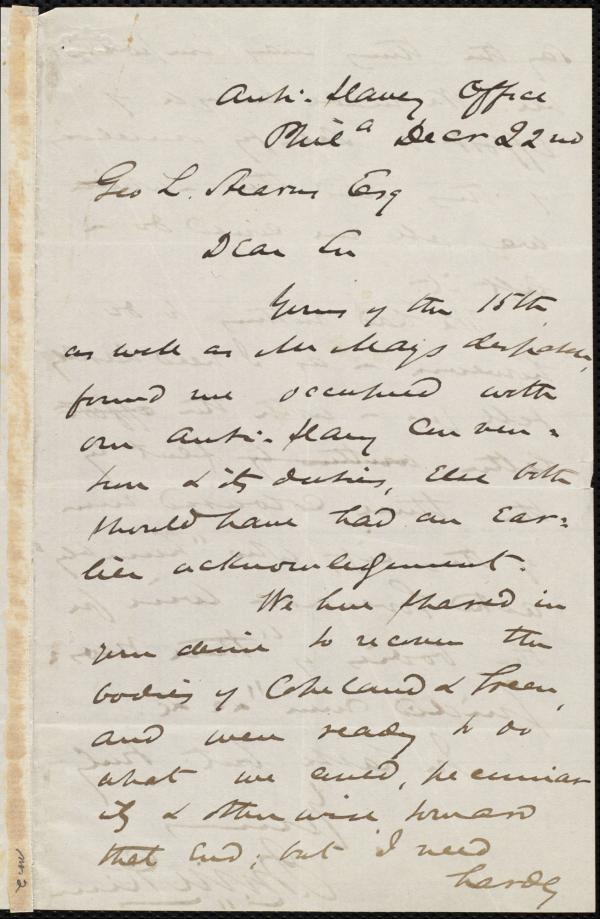 Anti-Slavery Office
Phila Decr 22nd
Geo L. Stearns Esq
Dear Sir
Yours of the 15th,
as well as Mr May's despatch,
found me occupied with
our Anti-Slavery Conven=
tion & its duties, Else both
should have had an Ear=
lier acknowledgement.
We have shared in
your desire to recover the
bodies of Copeland & Green,
and were ready to do
what we could, pecuniar
ily & otherwise toward
that End; but I need
hardly